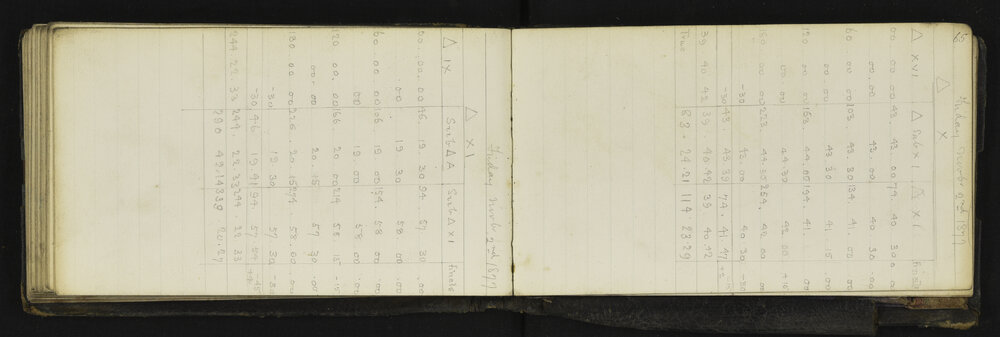 Friday Novbr 2nd 1877
△ XI
△ IX Sub △ A Sub △ XI finale
00.00.00 46. 19 30 94. 57 30 .00
.00 19 30 58 .00
60.00.00 106. 19 00 154. 58 00
.00 19 00 58 00
120 00.00 166. 20 00 214 58 15 -15
00.00 20.15 57 30 .00
180 .00 .00 226. 20 15 274. 58.00 .00
-30 19 30 57 30 30
-30 46 19 41 94. 57 54
244. 22. 33 244. 22 33 244. 22 33
290 42 14 339. 20.27
Friday Novbr 2nd 1877
△ X
△ XVI △ Sub XI △ XI finale
00 .00 43. 43. 00 74. 40 30 0
00.00 43.00 40 30 .00
60 .00 .00 103. 43. 30 134. 41. 00 .00
00 .00 43 30 41. 15 .00
120 .00 .00 163. 44.00 194. 41. .00
00 .00 44.30 42 00 +15
180 .00 .00 223. 44.30 254. 42 00 .00
-30 .00 42.00 40 30 -30
-30 43. 43 39 74. 41. 47
39 40 42 39. 40 42 39 40 42
True 83. 24 21 114 23 29